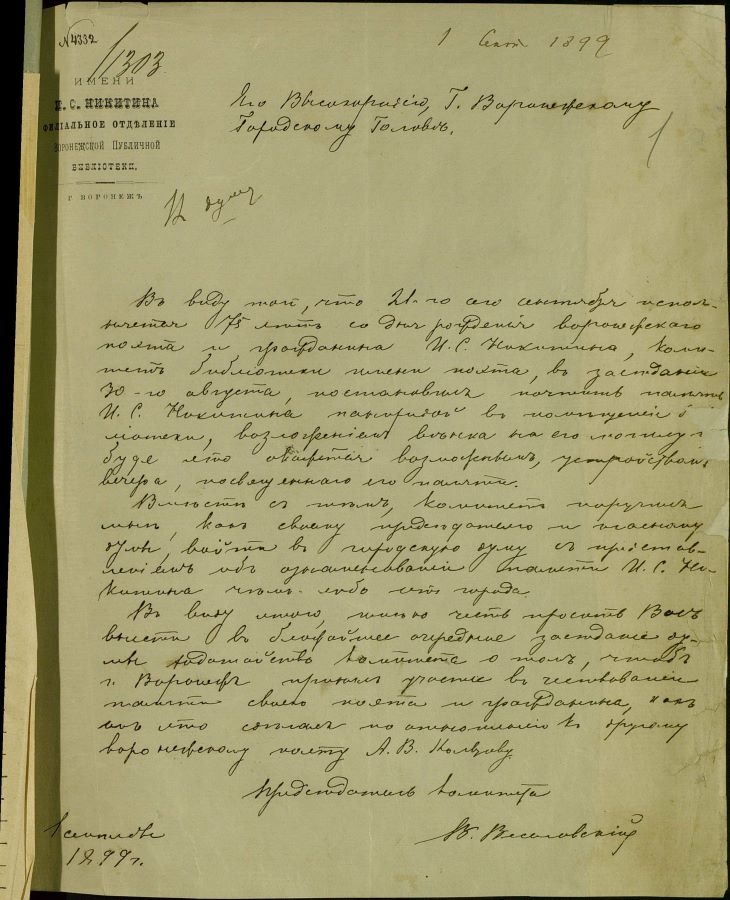 № 4332
1303
1 Сент 1899
ИМЕНИ
И. С. НИКИТИНА
ФИЛІАЛЬНОЕ ОТДѢЛЕНІЕ
ВОРОНЕЖСКОЙ ПУБЛИЧНОЙ
БИБЛІОТЕКИ.
Г. ВОРОНЕЖЪ
Его Высокородію, Г. Воронежскому
Городскому Головѣ.
1
Въ думу
Въ виду того, что 21-го сего сентября испол-
няется 75 лѣтъ со дня рожденія воронежскаго
поэта и гражданина И. С. Никитина, коми-
тетъ библіотеки имени поэта, въ засѣданіи
30-го августа, постановилъ почтить память
И. С. Никитина панихидой въ помѣщеніи б
ліотеки, возложеніемъ вѣнка на его могилу и
буде это окажется возможнымъ, устройствомъ
вечера, посвященнаго его памяти.
Вмѣстѣ съ тѣмъ, комитетъ поручилъ
мнѣ, какъ своему предсѣдателю и гласному
думы, войти въ городскую думу съ представ-
леніемъ объ ознаменованіи памяти И. С. Ни-
китина чѣмъ-либо отъ города.
Въ виду этого, имѣю честь просить Васъ
внести въ ближайшее очередное засѣданіе ду-
мы ходатайство комитета о томъ, чтобъ
г. Воронежъ принялъ участіе въ чествованіи
памяти своего поэта и гражданина, какъ
онъ это сдѣлалъ по отношенію къ другому
воронежскому поэту А. В. Кольцову.
Предсѣдатель комитета
В. Веселовскій
1 сентября
1899 г.